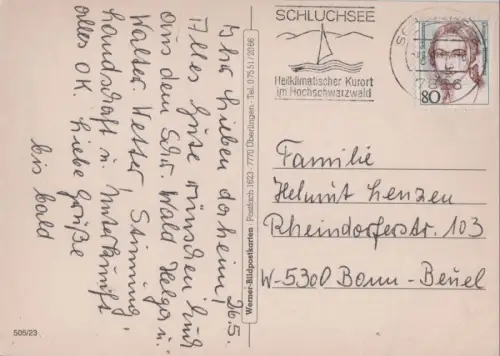 26.5.
Ihr Lieben daheim,
Alles Gute wünschen Euch
aus dem Schw. Wald Helga u.
Walter. Wetter, Stimmung,
Landschaft u. Unterkunft
alles OK. Liebe Grüße
bis bald
Werner-Bildpostkarten · Postfach 1623 · 7770 Überlingen · Tel. 07551/2066
SCHLUCHSEE
Heilklimatischer Kurort
im Hochschwarzwald
80
Familie
Helmut Lenzen
Rheindorferstr. 103
W-5300 Bonn-Beuel
505/23